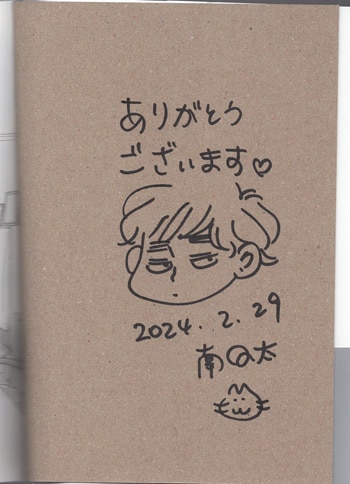 ありがとう
ございます♡
2024.2.29
南Q太